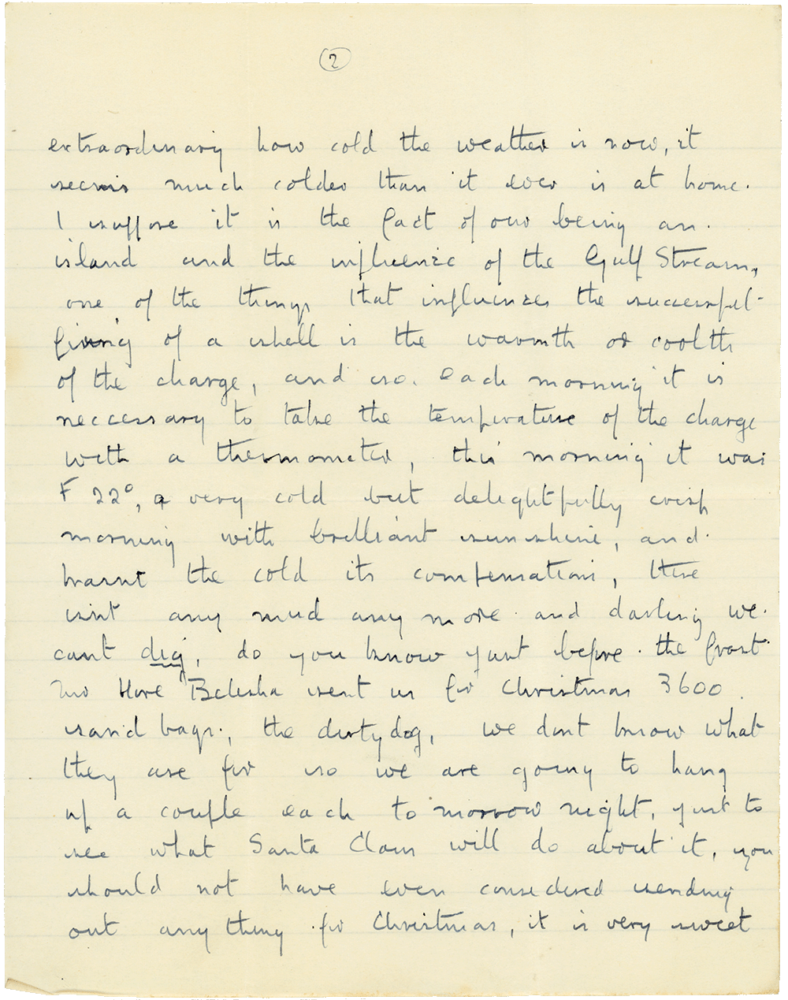 2
extraordinary how cold the weather is now, it
seems much colder than it ever is at home.
I suppose it is the fact of our being an
island and the influence of the Gulf Stream,
one of the things that influences the successful
firing of a shell is the warmth or coolth
of the charge, and so each morning it is
neccessary to take the temperature of the charge
with a thermometer, this morning it was
F 22°, a very cold but delightfully crisp
morning with brilliant sunshine, and
the cold its compensations, there
isnt any mud any more and darling we
cant dig, do you know just before the frost
Mr Hore Belisha sent us for Christmas 3600
sand bags, the dirty dog, we dont know what
they are for so we are going to hang
up a couple each to morrow night, just to
see what Santa Claus will do about it, you
should not have even considered sending
out any thing for Christmas, it is very sweet